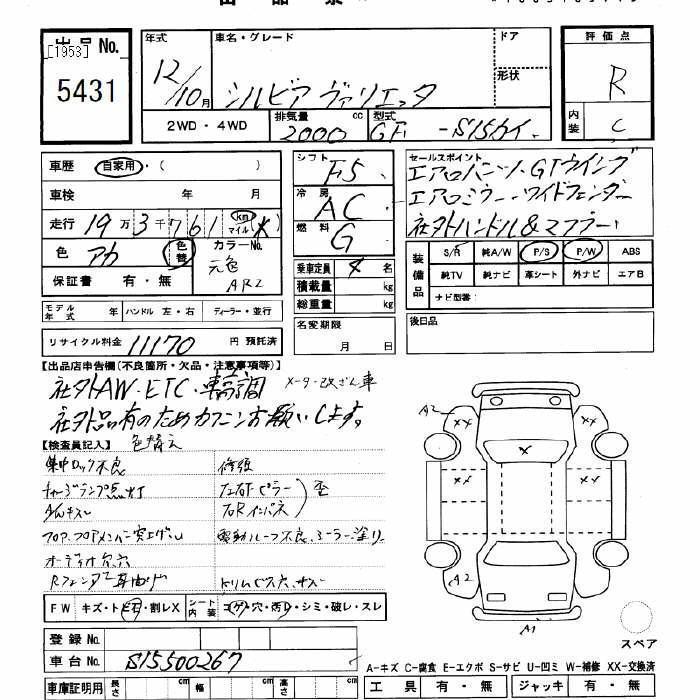 [1953]
出品 No.
5431
年式
12/10月
車名・グレード
シルビア ヴァリエッタ
ドア
形状
2WD・4WD
排気量 cc
2000
型式
GF-S15カイ
評価点
R
内装
C
車歴 自家用・( )
車検 年 月
走行 19万3千761 km マイル
色 アカ 色替
カラーNo.
元色
AR2
保証書 有・無
シフト F5
冷房 AC
燃料 G
乗車定員 4 名
積載量 kg
総重量 kg
セールスポイント
エアロバンパー・GTウイング
エアロミラー・ワイドフェンダー
社外ハンドル&マフラー
装備品
S/R 純A/W P/S P/W ABS
純TV 純ナビ 革シート 外ナビ エアB
ナビ型番:
モデル年式 年 ハンドル 左・右 ディーラー・並行
リサイクル料金 11170 円 預託済
名変期限
月 日
後日品
【出品店申告欄(不良箇所・欠品・注意事項等)】
社外AW・ETC・車高調 メーター改ざん車
社外品有のためカクニンお願いします。
【検査員記入】 色替え
集中ロック不良 修復
チャージランプ点灯
フロア、フロアメンバー突上げ
電動ルーフ不良、ミラー塗り
オーディオ欠、穴
FW キズ・トビ石・割レX
シート内装 コゲ・穴・汚レ・シミ・破レ・スレ
A2
XX
XX
X
XX
XX
A2
A1
スペア
登録 No.
車台 No. S15500267
A-キズ C-腐食 E-エクボ S-サビ U-凹ミ W-補修 XX-交換済
車庫証明用 長さ cm 幅 cm 高さ cm
工具 有・無 ジャッキ 有・無